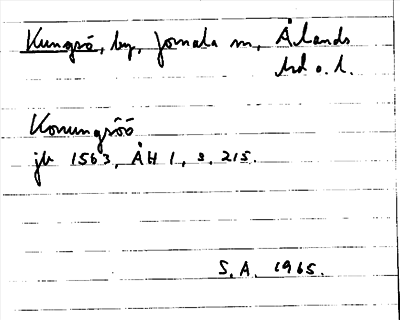 Kungsö, by, Jomala sn, Ålands
hd o. l.
Konungzöö
jb 1563, ÅH 1, s. 215.
S. A. 1965.